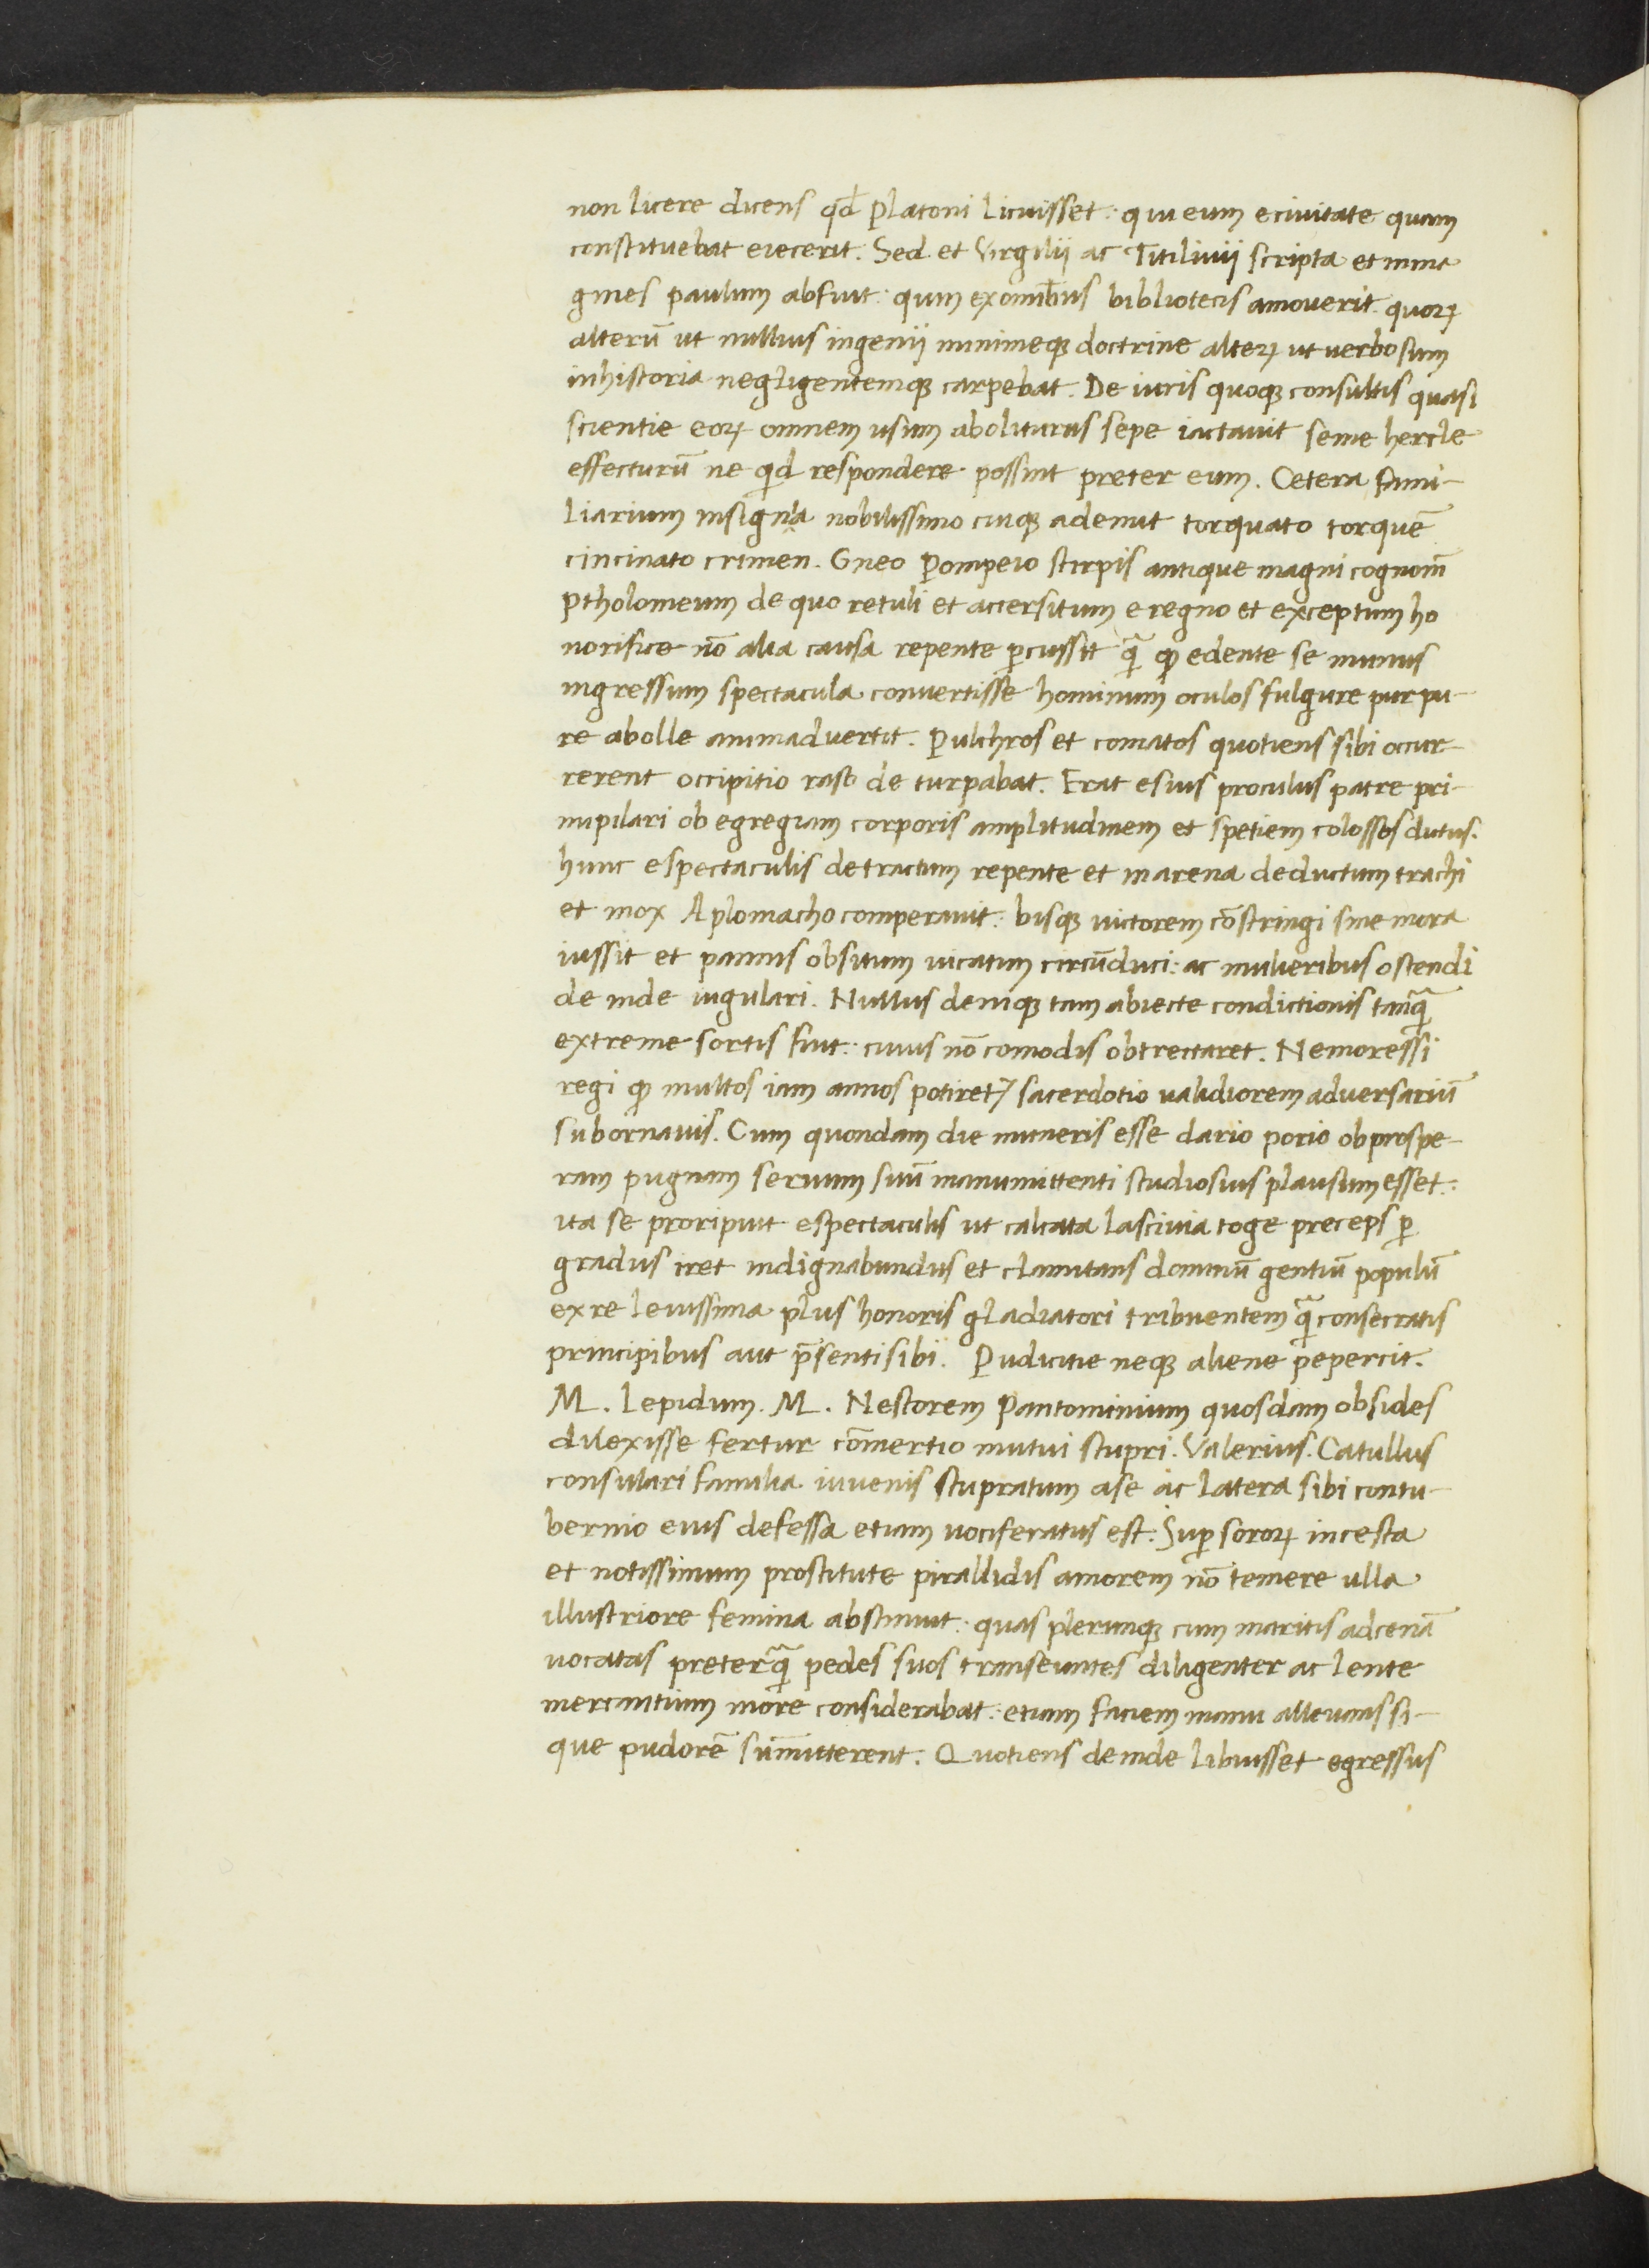 non licere dicens qđ Platoni licuisset: qui eum e ciuitate quam
constituebat eiecerit. Sed et Virgilii ac Titiliuii scripta et ima
gines paulum abfuit: quin ex omnibus bibliotecis amouerit. quoꝝ
alterū ut nullius ingenii minimeqꝫ doctrine alteꝝ ut uerbosum
in historia negligentemqꝫ carpebat. De iuris quoqꝫ consultis quasi
scientie eoꝝ omnem usum aboliturus sepe iactauit se me hercle
effecturū ne qd respondere possint preter eum. Cetera fami-
liarium insignia nobilissimo cuiqꝫ ademit torquato torquē
cincinato crimen. Gneo Pompeio stirpis antique magni cognom̄
Ptholomeum de quo retuli et accersitum e regno et exceptum ho
norifice nō alia causa repente ꝑcussit q̄ꝫ ꝙ edente se munus
ingressum spectacula conuertisse hominum oculos fulgure purpu-
re abolle animaduertit. Pulchros et comatos quotiens sibi occur-
rerent occipitio raso de turpabat. Erat esius proculus patre pri-
mipilari ob egregiam corporis amplitudinem et spetiem colossos dictus.
hunc e spectaculis detractum repente et in arena deductum trachi
et mox Aplomacho comperauit: bisqꝫ uictorem cōstringi sine mora
iussit et pannis obsitum uicatim circūduci: ac mulieribus ostendi
de inde iugulari. Nullus deniqꝫ tam abiecte condictionis tanq̄ꝫ
extreme sortis fuit: cuius nō comodis obtrectaret. Nemoressi
regi ꝙ multos iam annos potiret᷑ sacerdotio ualidiorem aduersariū
subornauis. Cum quondam die muneris esse dario porio ob prospe-
ram pugnam seruum suū manumittenti studiosius plausum esset:
ita se proripuit e spectaculis ut calcata lasciuia toge preceps ꝑ
gradus iret indignabundus et clamitans dominū gentiū populū
ex re leuissima plus honoris gladiatori tribuentem q̄ꝫ consecratis
principibus aut p̄senti sibi. Pudicitie neqꝫ aliene pepercit.
M. Lepidum. M. Nestorem Pantominium quosdam obsides
dilexisse fertur cōmertio mutui stupri. Valerius. Catullus
consulari familia iuvenis stupratum a se ac latera sibi contu-
bernio eius defessa etiam uociferatus est. Suꝑ soroꝝ incesta
et notissimum prostitute pirallidis amorem nō temere ulla
illustriore femina abstinuit: quas plerunqꝫ cum maritis ad cenā
uocatas preterq̄ꝫ pedes suos transeuntes diligenter ac lente
mercantium more considerabat: etiam faciem manu alleuans si-
que pudorē sum̄itterent. Quotiens deinde libuisset egressus